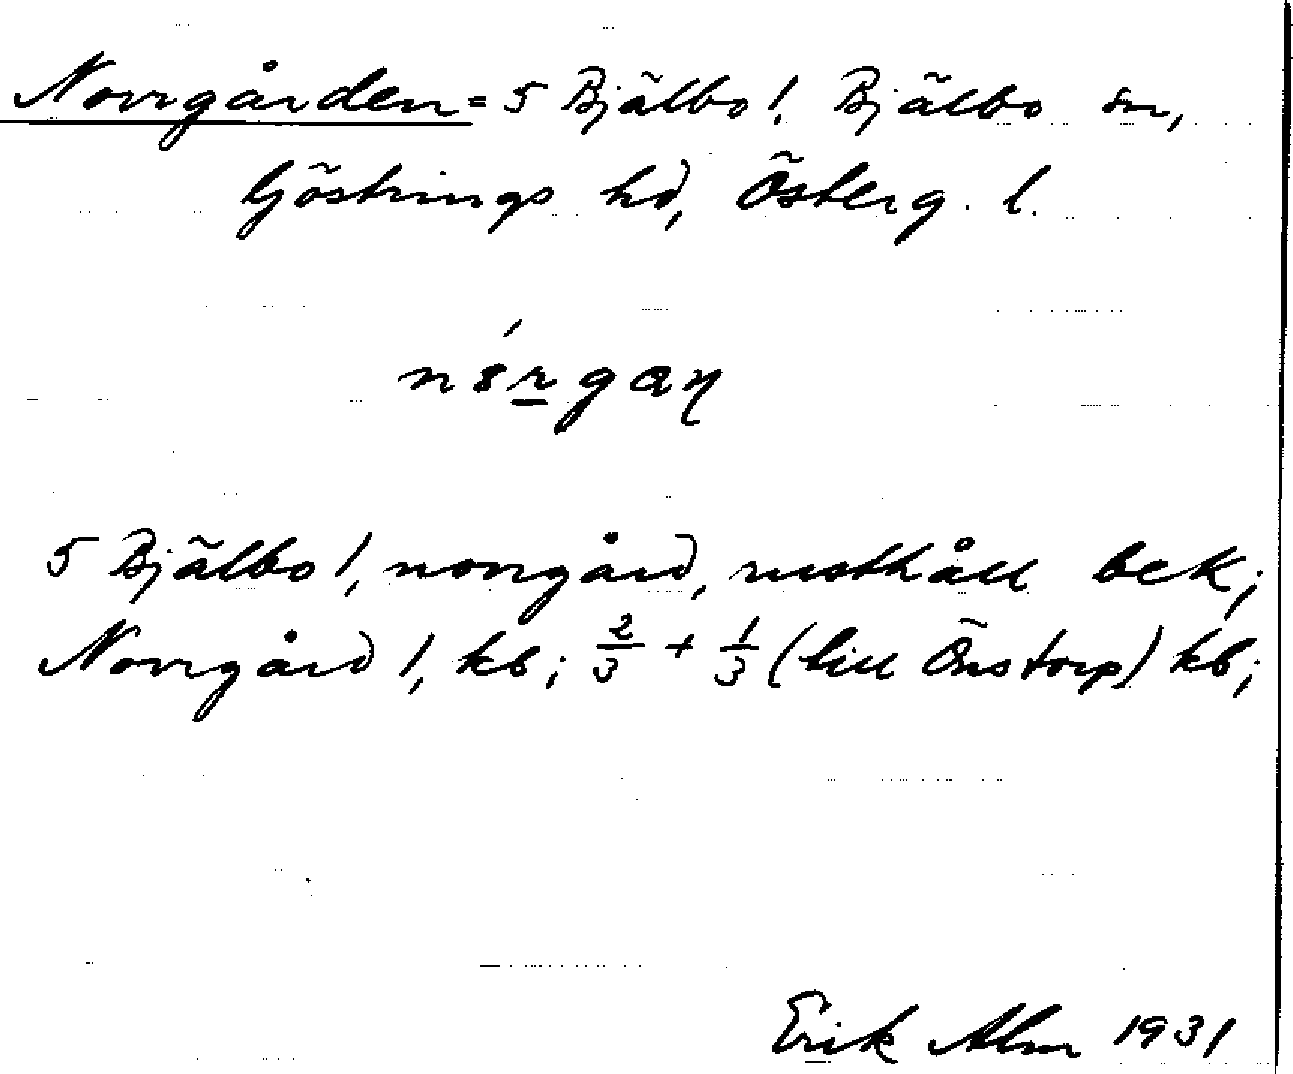 Norrgården = 5 Bjälbo 1, Bjälbo sn,
Göstrings hd, Österg. l.
5 Bjälbo 1, norrgård, rusthåll bek;
Norrgård 1, kb; 2/3 + 1/3 (till Önstorp) kb;
Erik Alm 1931